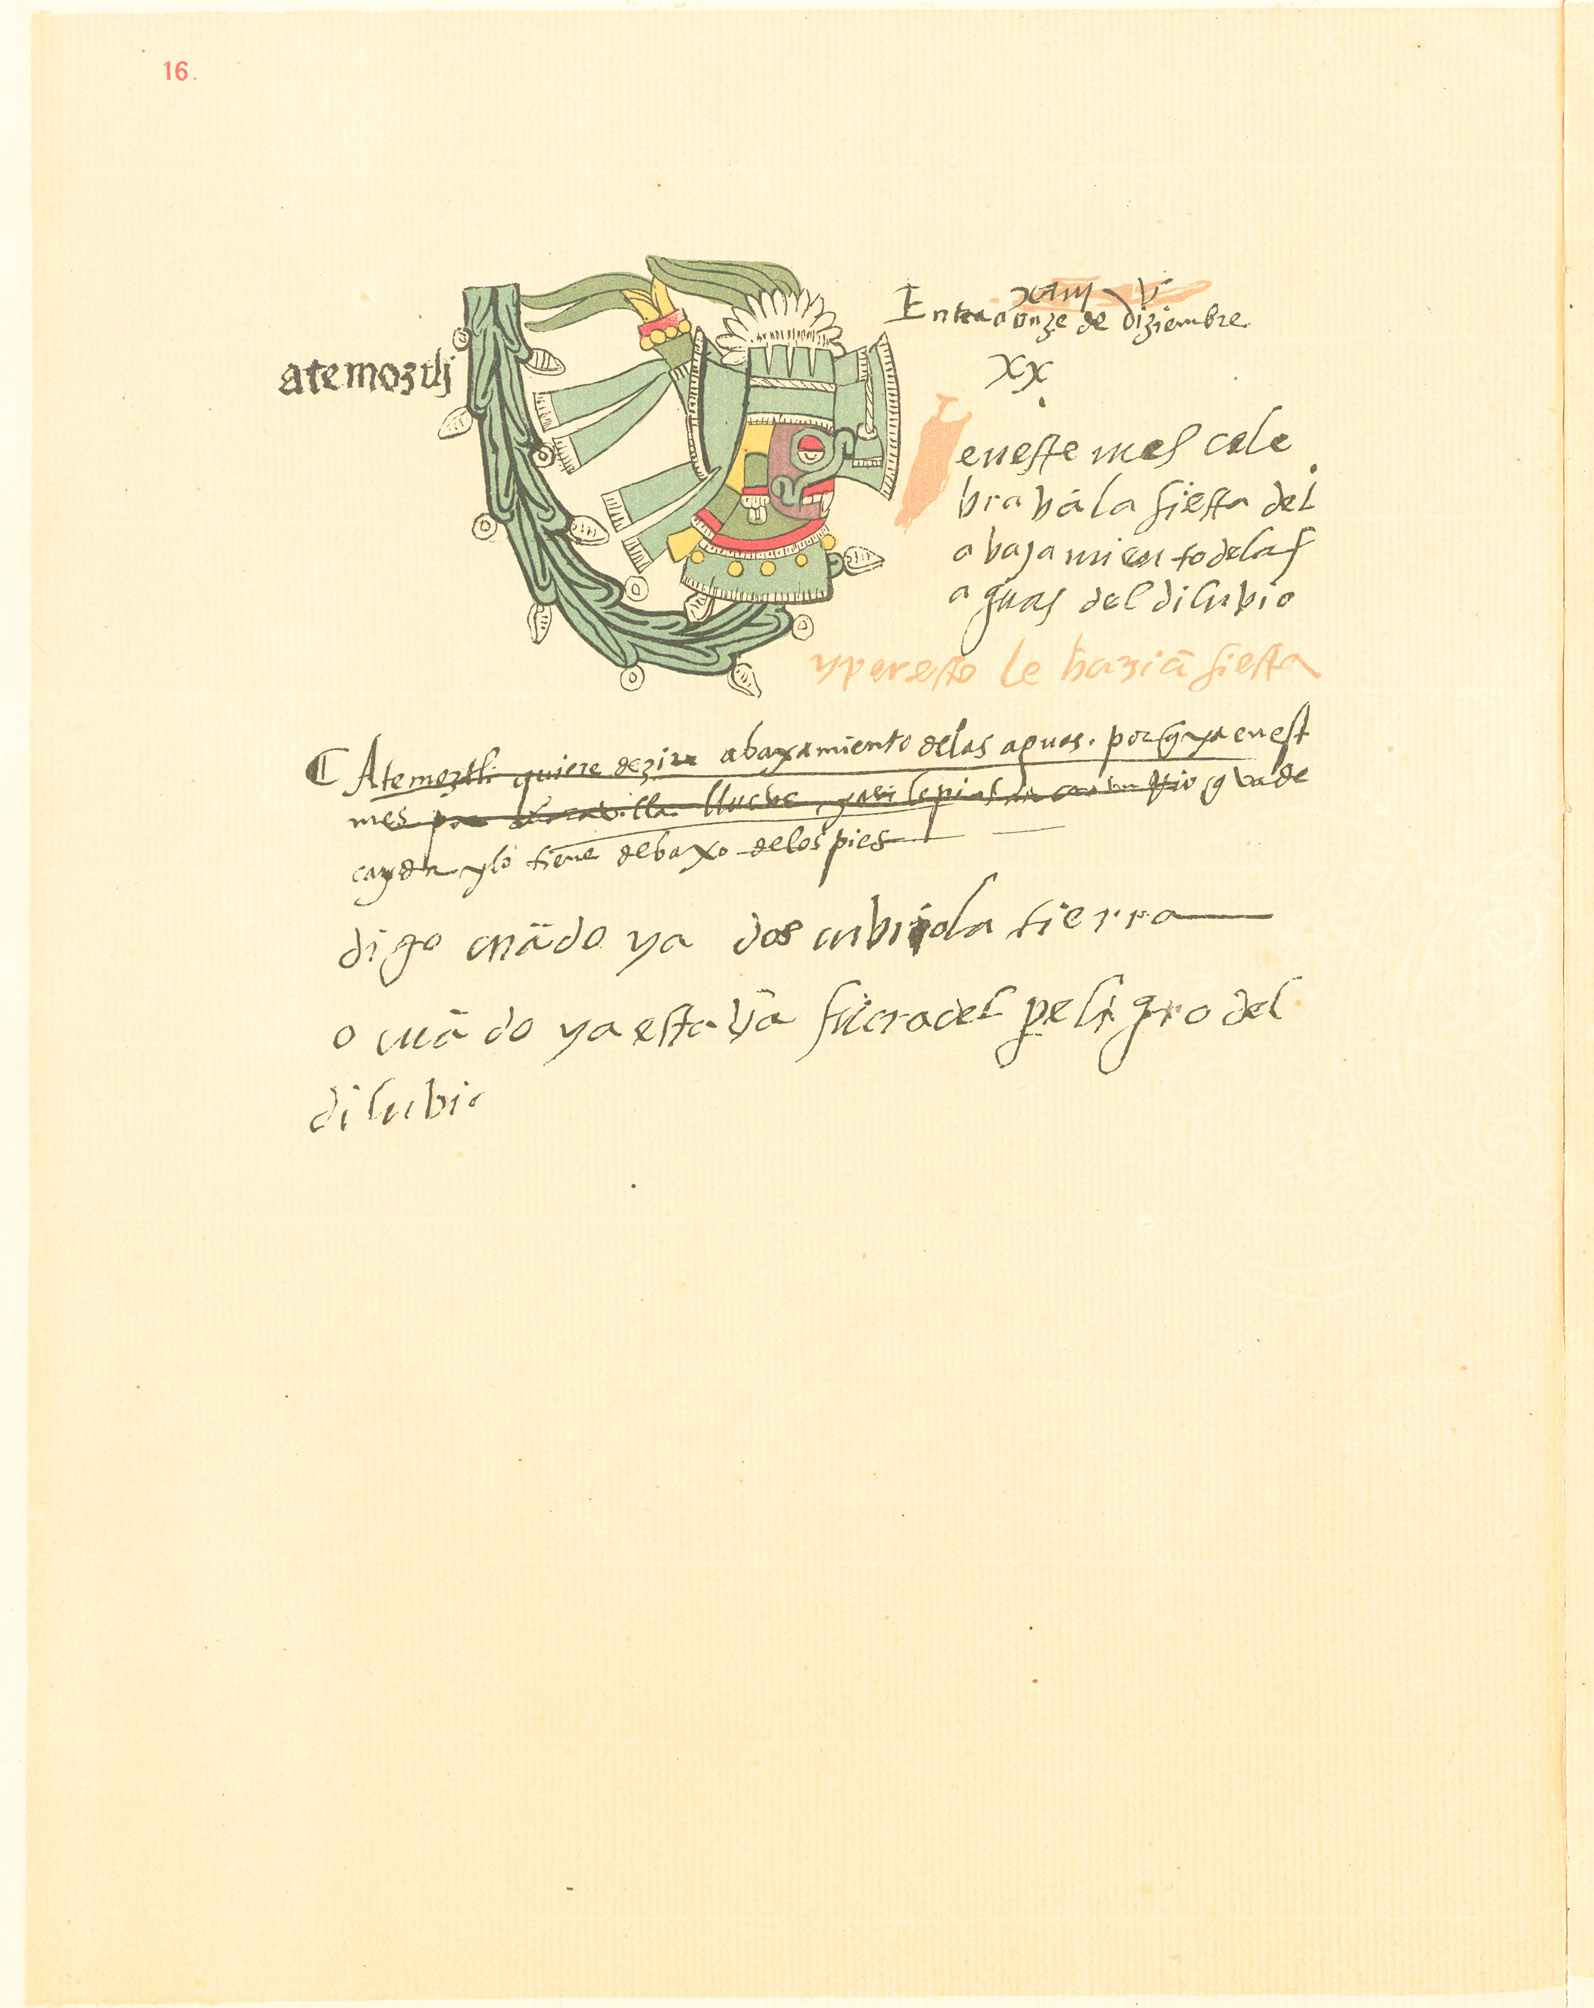 16.
atemoztli
xviii V
Entra a onze de diziembre
xx
en este mes cele
bravā la fiesta del
abajamiento de las
aguas del dilubio
y por esto le haziā fiesta
Atemoztli quiere dezir abaxamiento de las aguas. porq̄ ya en est
mes por maravilla llueve, y asi le pintan con un Rio q̄ va de
cayda y lo tiene debaxo de los pies
digo cuādo ya dos cubrio la tierra
o cuādo ya estavā fuera del peligro del
dilubio